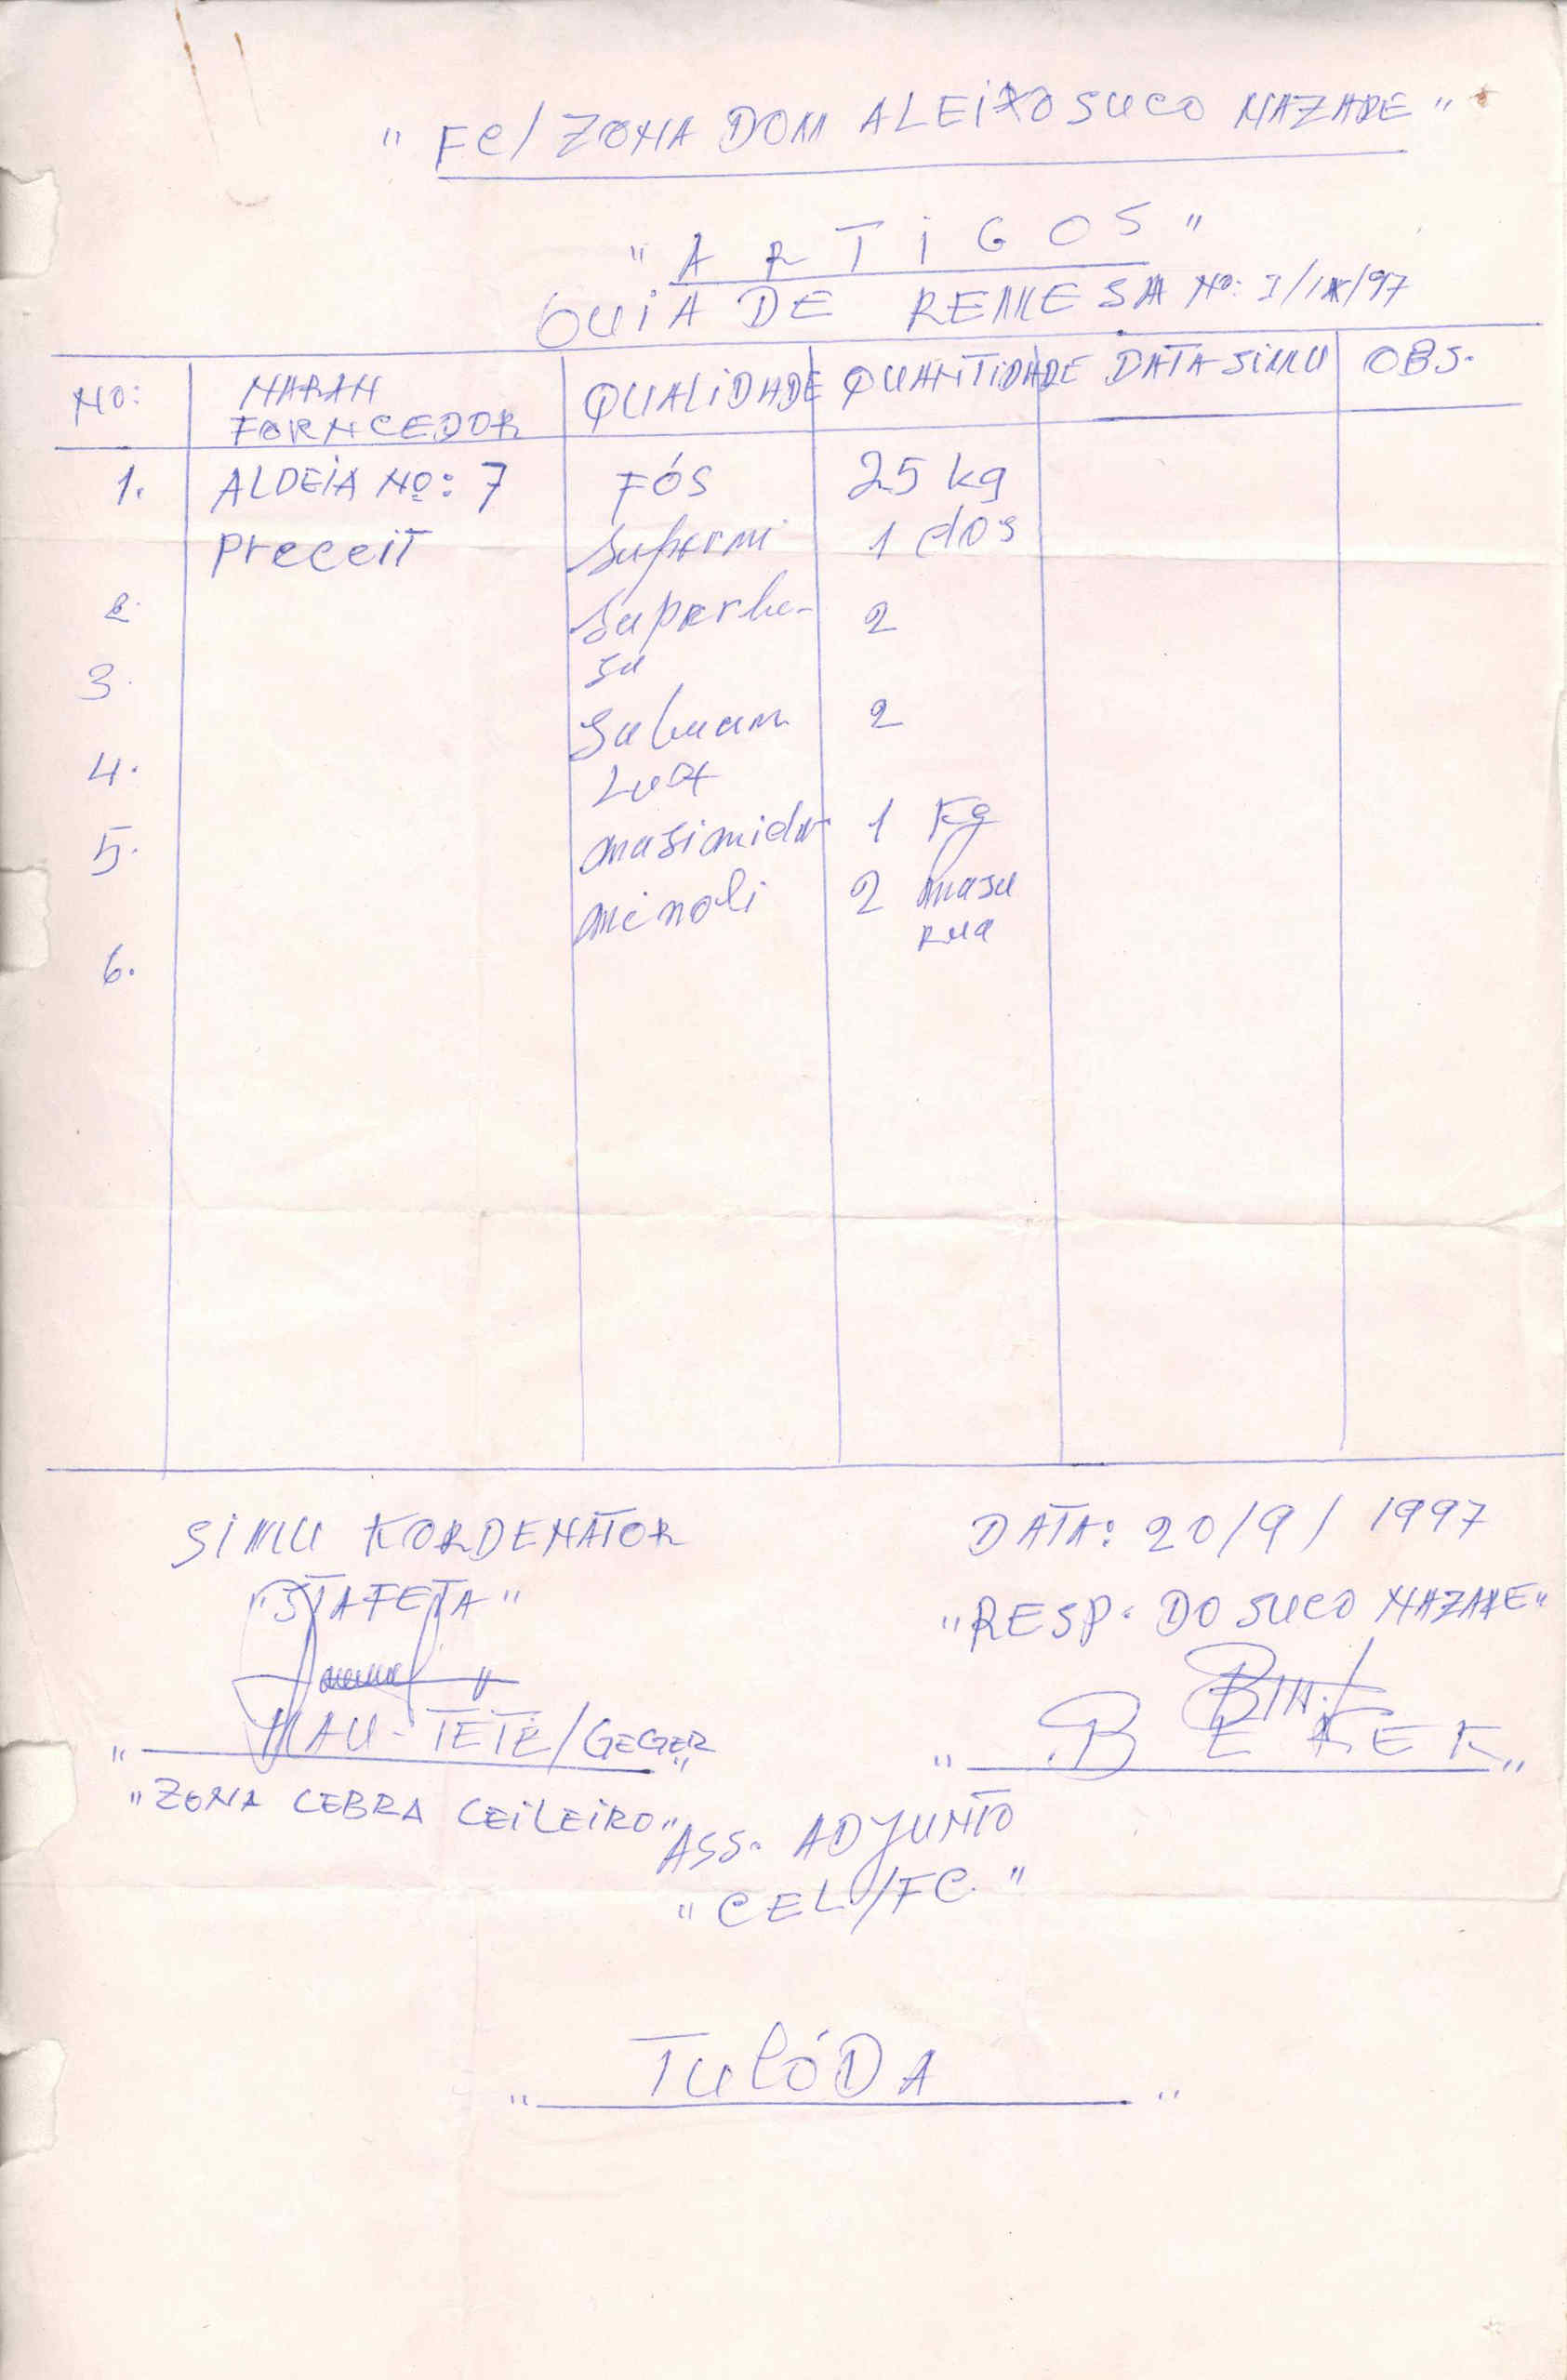 " FC/ ZONA DOM ALEIXO SUCO NAZARE "
" A R T I G O S "
GUIA DE REMESA Nº: I/IX/97
Nº: NARAN FORNCEDOR QUALIDADE QUANTIDADE DATA SIMU OBS.
1. ALDEIA Nº: 7 FÓS 25 kg
Preceit Supermi 1 dos
2. Superbu- 2
3. sa
Sabuam 2
4. Lux
5. masimidar 1 Kg
minoli 2 masu
6. rua
SIMU KORDENATOR DATA: 20/9/ 1997
"STAFETA" "RESP. DO SUCO NAZARE"
" MAU-TETE/GEGER " " BEKEK "
"ZONA CEBRA CEILEIRO" ASS. ADJUNTO
"CEL/FC."
" TULÓDA "